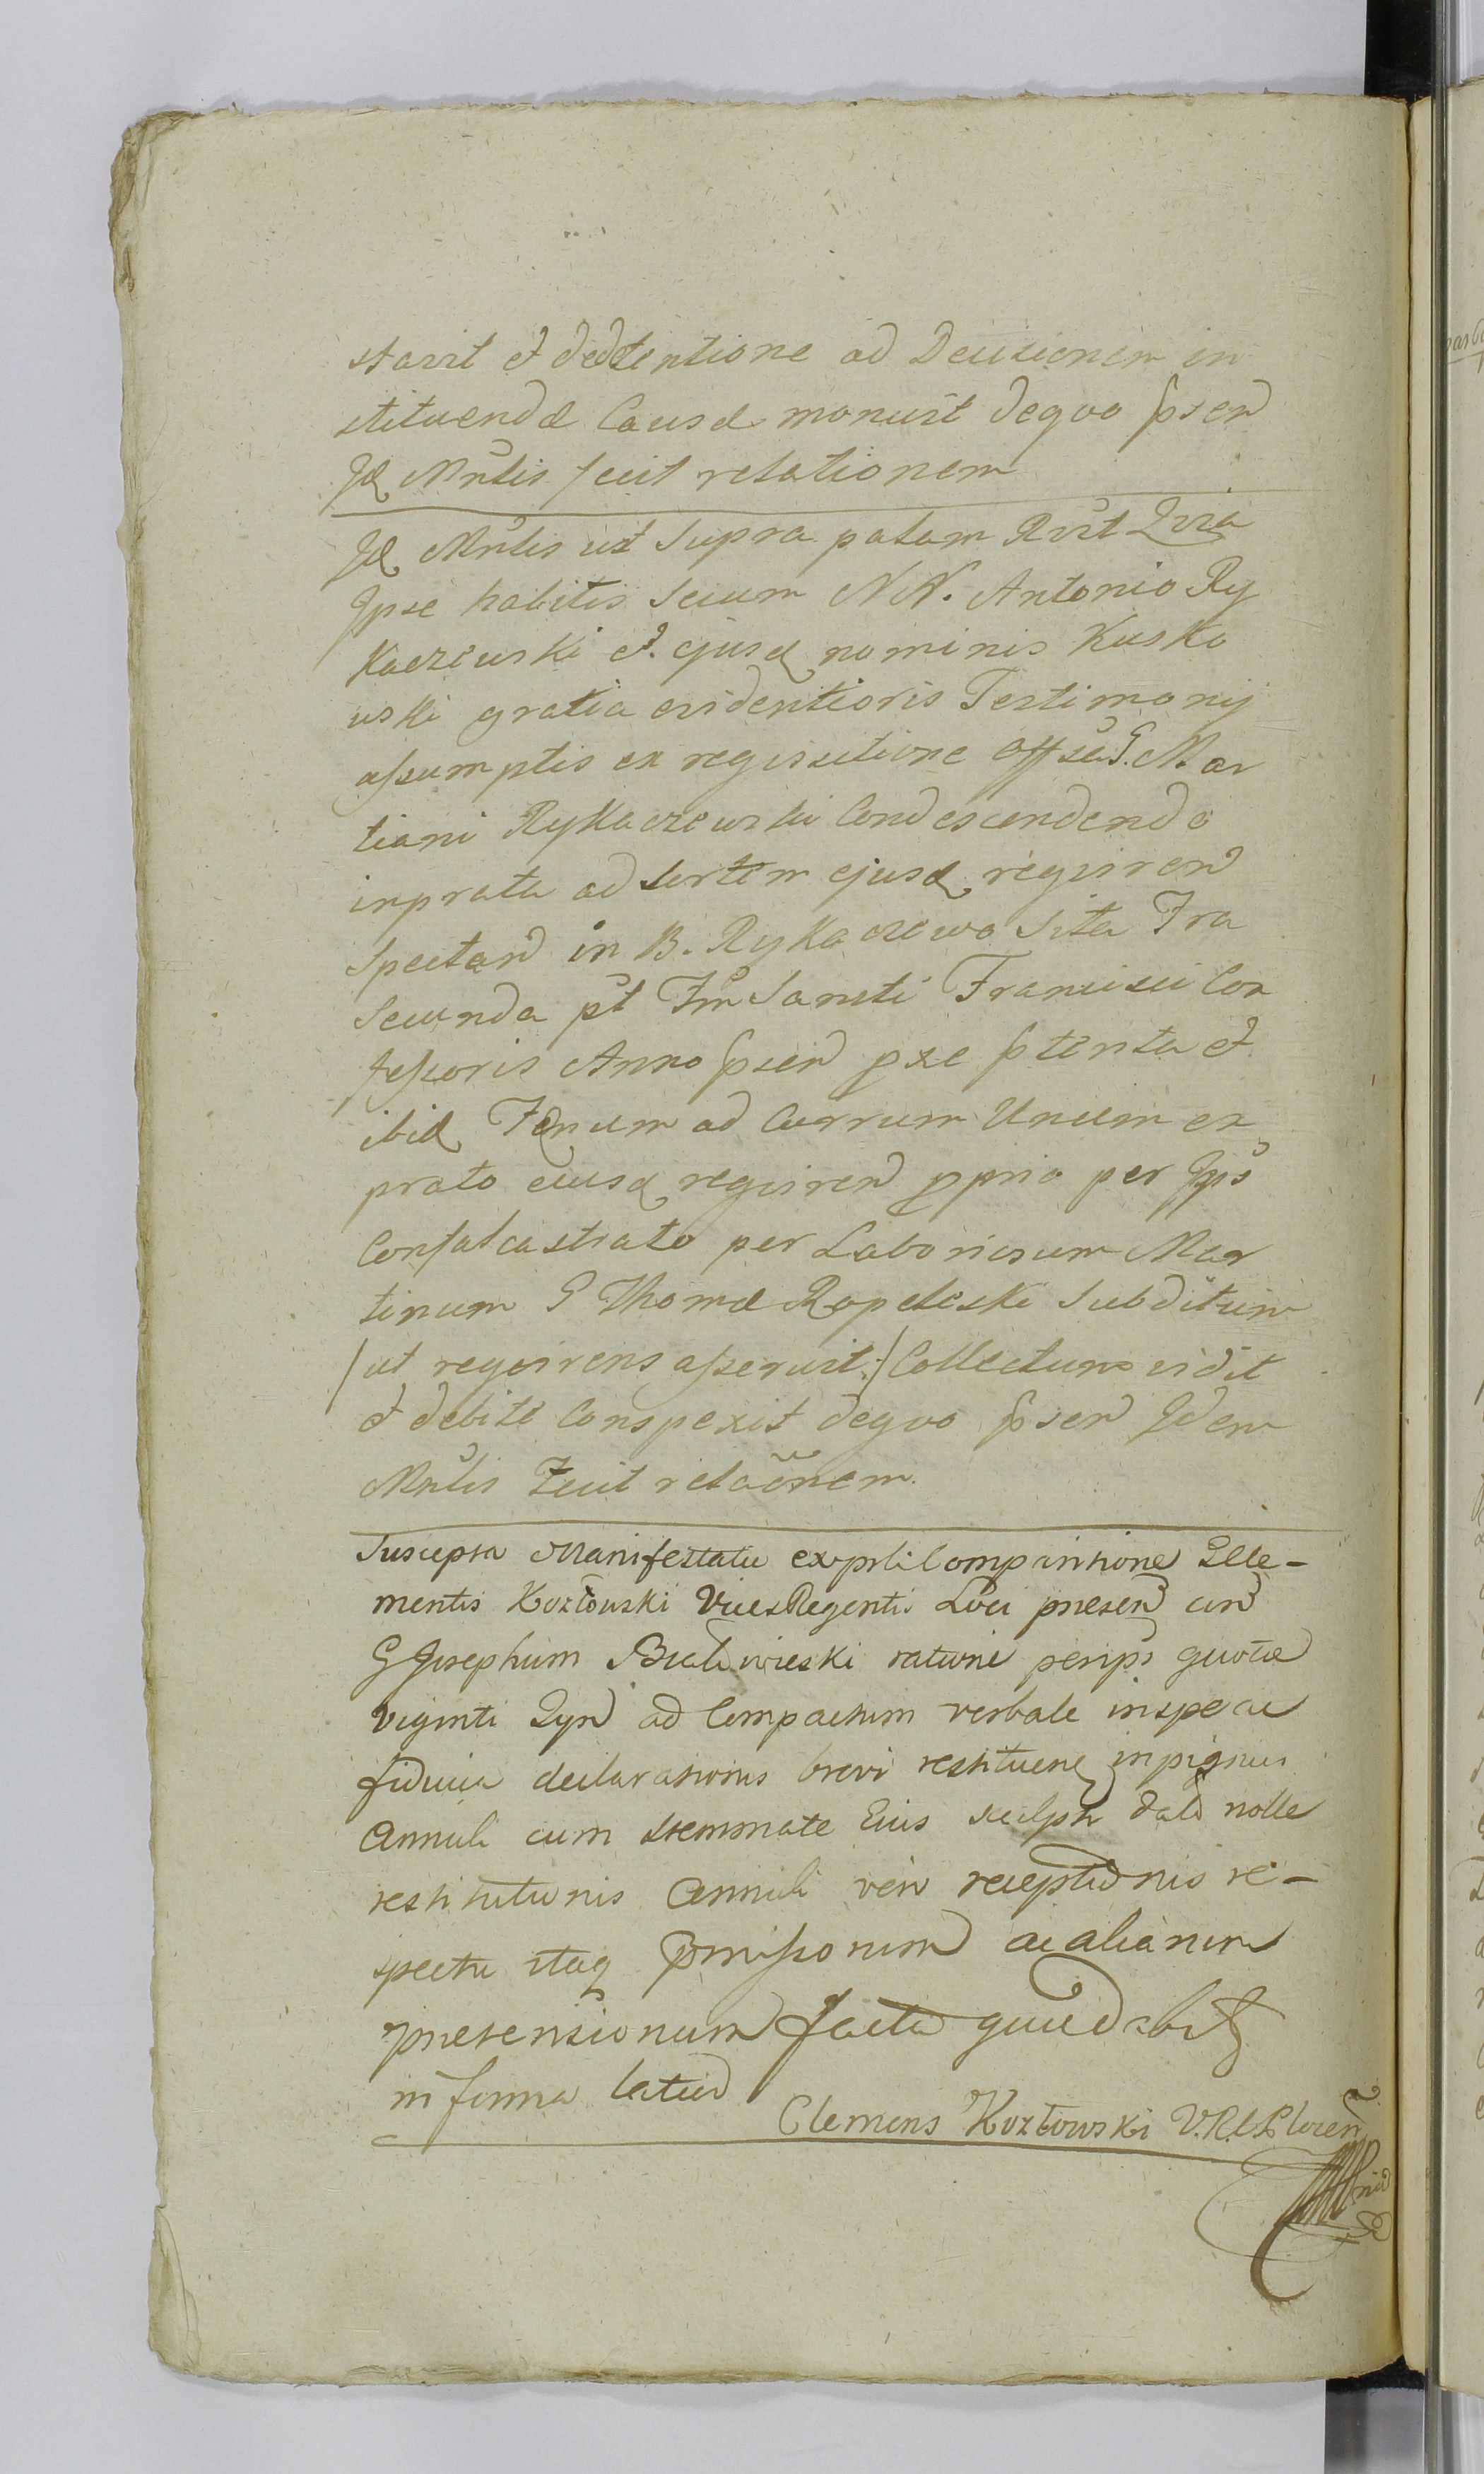 stavit et de detentione ad Decisionem in
stituendæ Causæ monuit dequo pren
Id Mrlis fecit relationem
Id Mrlis ut supra palam Rvit Quia
Ipse habitis secum NN. Antonio Ry
kaczewski et ejusd nominis Kusko
wski gratia evidentioris Testimonij
assumptis ex requisitione Offsa G. Mar
tiani Rykaczewski Condescendendo
inprata ad sortem ejusd requiren
Spectan in B. Rykaczewo sita Fra
Secunda pt Fm Sancti Francisci Con
fessoris Anno pren pxe ptenta et
ibid Fænum ad Currum Unum ex
prato eiusd requiren pprio per Ips
Confalcastrato per Laboriosum Mar
tinum G Thomæ Rapelski Subditum
/ut requirens asseruit:/ Collectum vidit
et debite Conspexit dequo pren Idem
Mrlis Fecit relaõnem.
Suscepta Manifestatio ex prli Comparitione Cle-
mentis Kozłowski Vices Regentis Loci presen con
G Josephum ratione per ips quotæ
Viginti ad Compactum verbale inspe ac
fiducia declarationis brevi restituend in pignus
Annuli cum stemmate Eius sculpti dati nolle
restitutionis Annuli vero receptionis re-
spectu itaq pmissorum ac aliarum
pretensionum facta
in forma latiori
Clemens Kozłowski V.R.C.P.